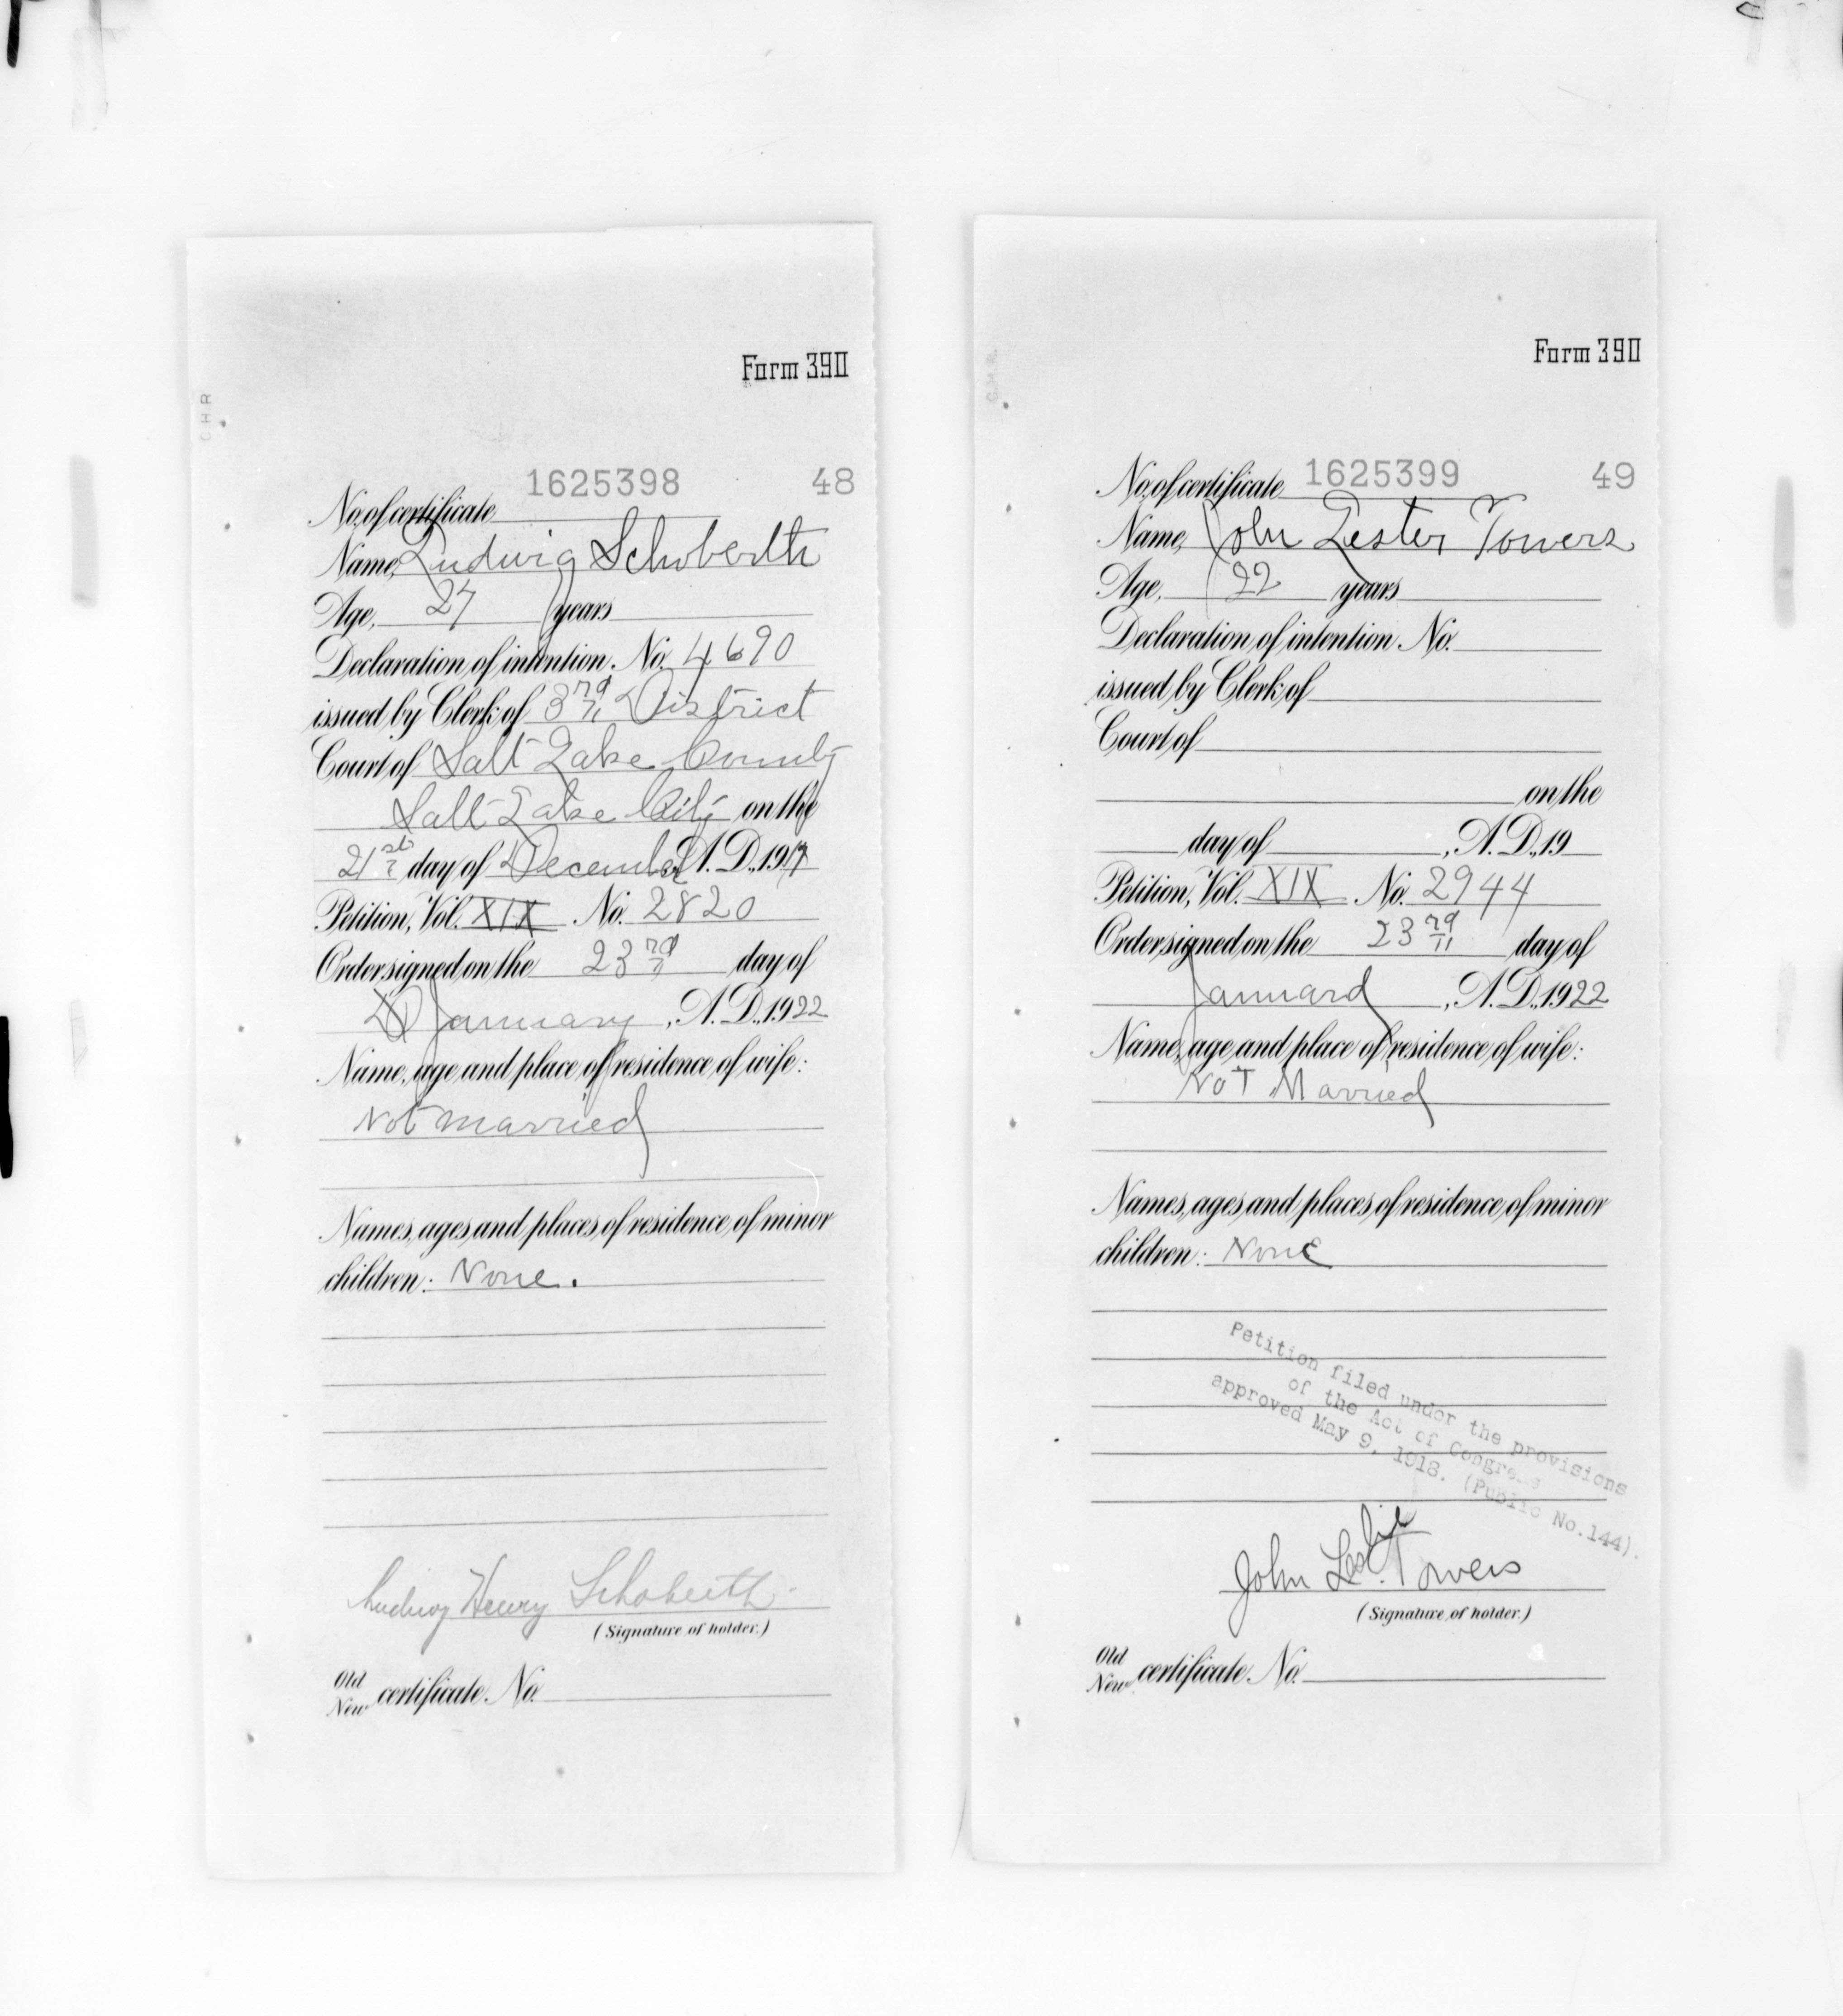 Form 390
CHR
1625398 48
No. of certificate
Name, Ludwig Schoberth
Age, 27 years
Declaration of intention, No. 4690
issued by Clerk of 3rd District
Court of Salt Lake County
Salt Lake City on the
21st day of December A.D., 1917
Petition, Vol. XIX No. 2820
Order signed on the 23rd day of
January, A.D., 1922
Name, age and place of residence of wife:
Not married
Names, ages and places of residence of minor
children: None.
Ludwig Henry Schoberth
(Signature of holder.)
Old
New certificate No.
Form 390
No. of certificate 1625399 49
Name, John Lester Towers
Age, 22 years
Declaration of intention No.
issued by Clerk of
Court of
on the
day of , A.D., 19
Petition, Vol. XIX No. 2944
Order signed on the 23rd day of
January, A.D., 1922
Name, age and place of residence of wife:
Not Married
Names, ages and places of residence of minor
children: None
Petition filed under the provisions
of the Act of Congress
approved May 9, 1918. (Public No.144).
John Leslie Towers
(Signature of holder.)
Old
New certificate No.